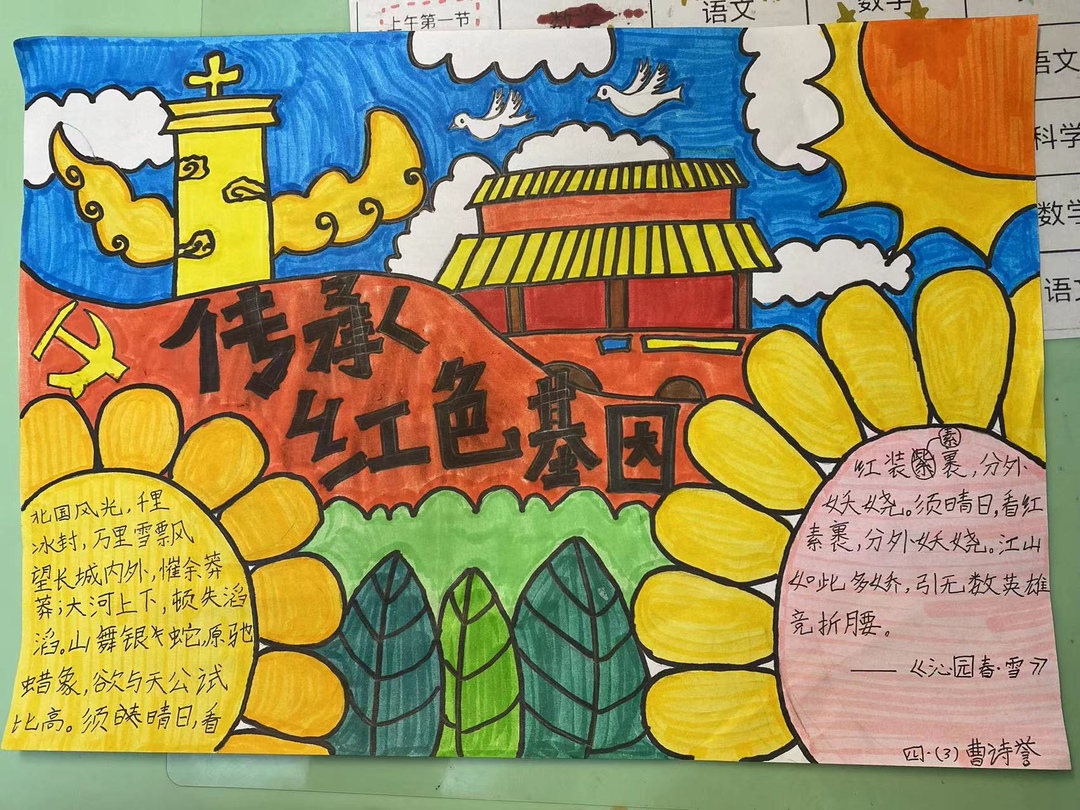 上午第一节
语文
数学
语文
科学
数学
语文
传承
红色基因
北国风光，千里
冰封，万里雪飘
望长城内外，惟余莽
莽；大河上下，顿失滔
滔。山舞银蛇，原驰
蜡象，欲与天公试
比高。须晴日，看
红装素裹，分外
妖娆。须晴日，看红
素裹，分外妖娆。江山
如此多娇，引无数英雄
竞折腰。
——《沁园春·雪》
四·(3) 曹诗誉